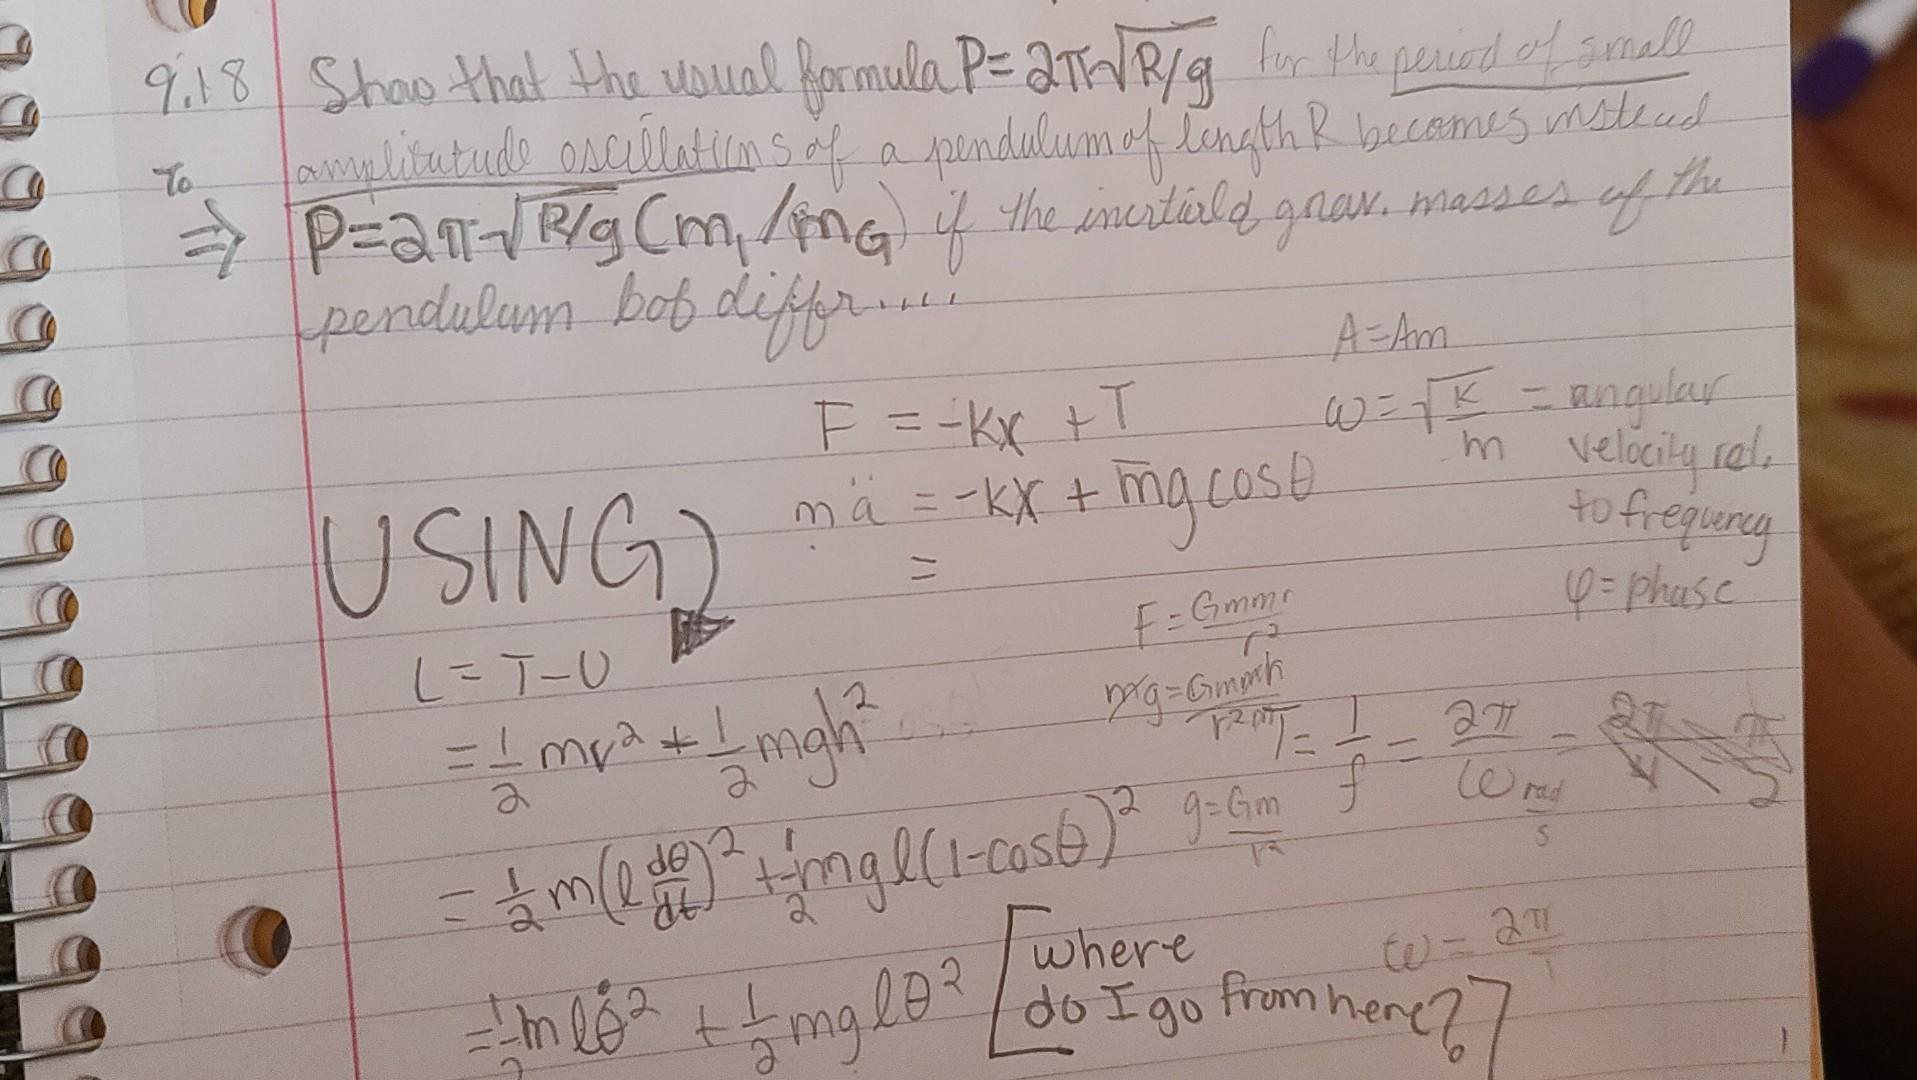 9.18 Show that the usual formula P=2π√R/g for the period of small
amplitutude oscillations of a pendulum of length R becomes instead
To
⇒ P=2π√R/g (m₁/mG) if the inertial & grav. masses of the
pendulum bob differ.....
A=Am
F = -kx + T
ω=√k/m = angular
velocity rel.
to frequency
φ=phase
mä = -kx + mg cosθ
=
USING)
F = Gmm/r²
L = T-U
= 1/2 mv² + 1/2 mgh²
T = 1/f = 2π/ω rad/s
g=Gm/r²
= 1/2 m(l dθ/dt)² + 1/2 mgl(1-cosθ)²
= 1/2 mlθ̇² + 1/2 mglθ²
[where
do I go from here?]
ω = 2π/T